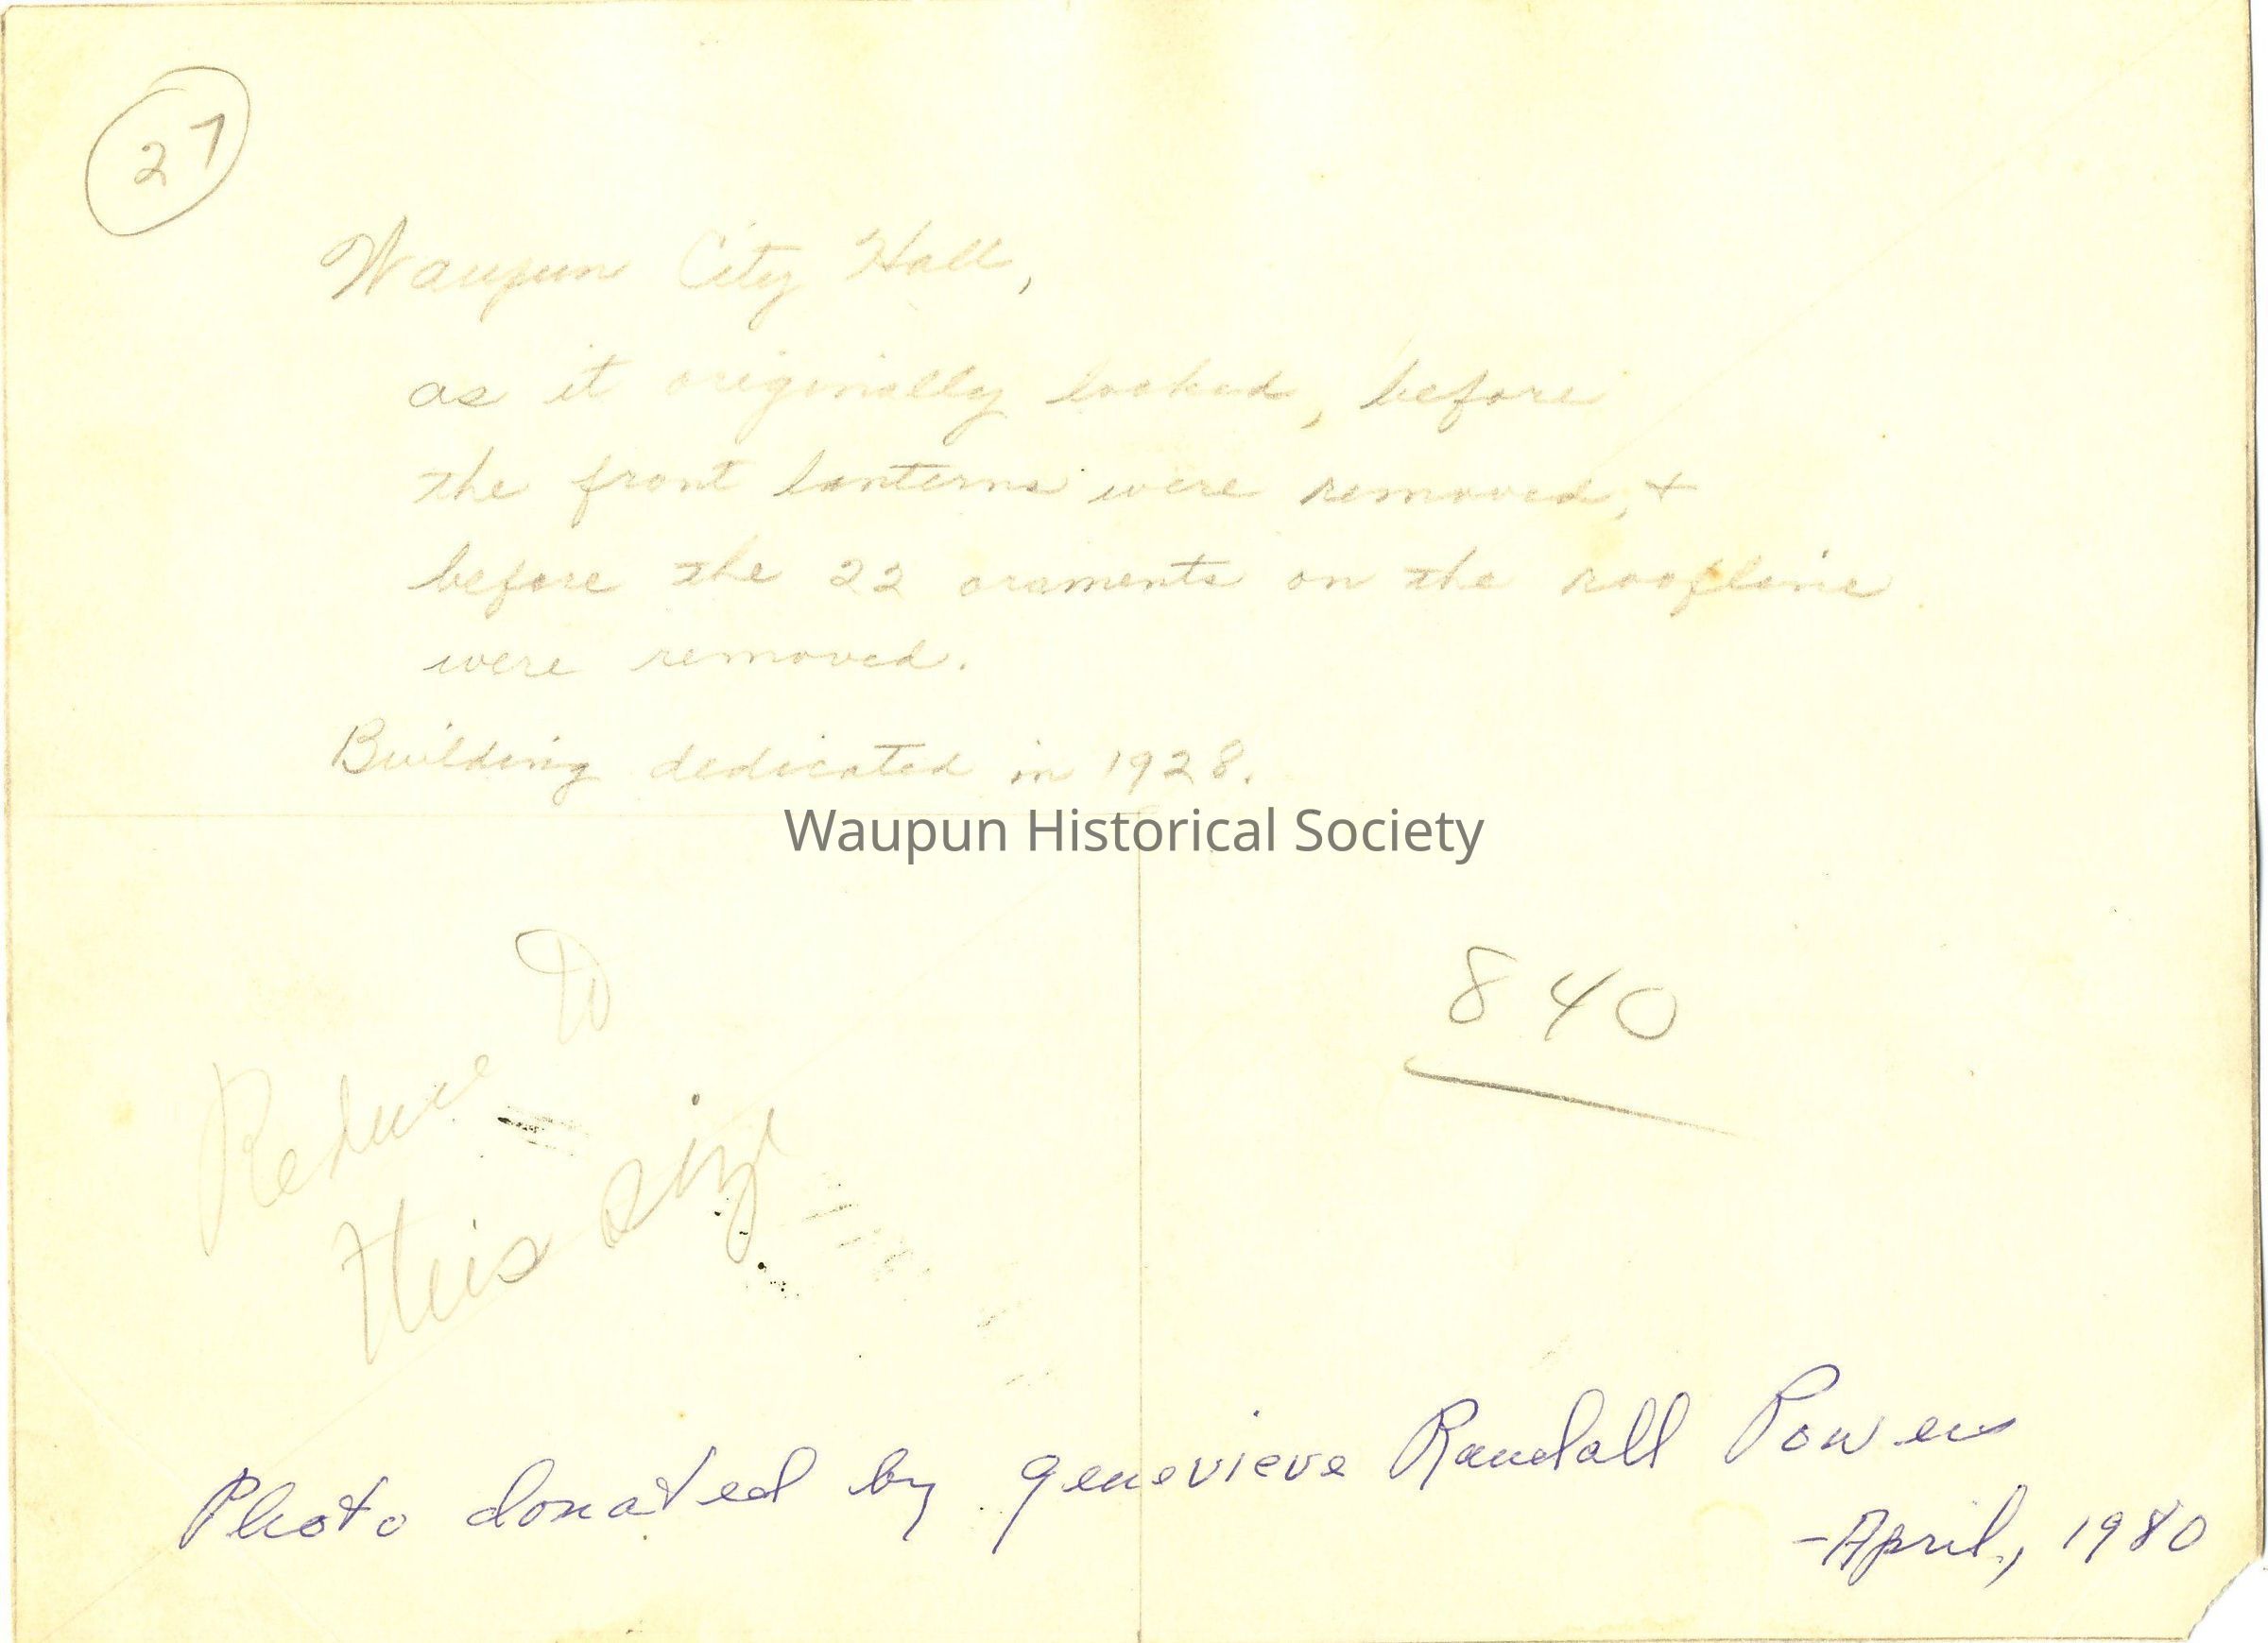 27
Waupun City Hall,
as it originally looked, before
the front lanterns were removed, +
before the 22 oraments on the roofline
were removed.
Building dedicated in 1928.
Waupun Historical Society
Reduce to
this size
840
Photo donated by Genevieve Randall Powers
- April, 1980